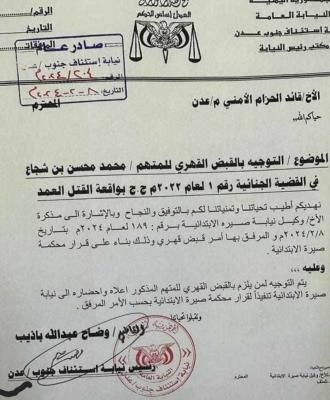 النيابة العامة
استئناف جنوب عدن
مكتب رئيس النيابة
الرقم/
التاريخ
صادر عام
نيابة إستئناف جنوب/
الرقم ٢٠٤/٢٠٢٤م
التاريخ: ٨-٢-٢٠٢٤م
الأخ/ قائد الحزام الأمني م/عدن
المحترم
حياكم الله
الموضوع / التوجيه بالقبض القهري للمتهم / محمد محسن بن شجاع
في القضية الجنائية رقم ١ لعام ٢٠٢٢م ج.ج بواقعة القتل العمد
نهديكم أطيب تحياتنا وتمنياتنا لكم بالتوفيق والنجاح وبالإشارة الى مذكرة
الأخ/ وكيل نيابة صيره الإبتدائية برقم : ١٨٩ لعام ٢٠٢٤م بتاريخ
٢٠٢٤/٢/٨م و المرفق بها أمر قبض قهري وذلك بناء على قرار محكمة
صيرة الابتدائية .
وعليه ،،،
يتم التوجيه لمن يلزم بالقبض القهري للمتهم المذكور اعلاه واحضاره الى نيابة
صيرة الابتدائية تنفيذاً لقرار محكمة صيرة الابتدائية بحسب الأمر المرفق .
وتقبلوا تحياتنا
القاضي/ وضاح عبدالله باذيب
رئيس نيابة استئناف جنوب/عدن